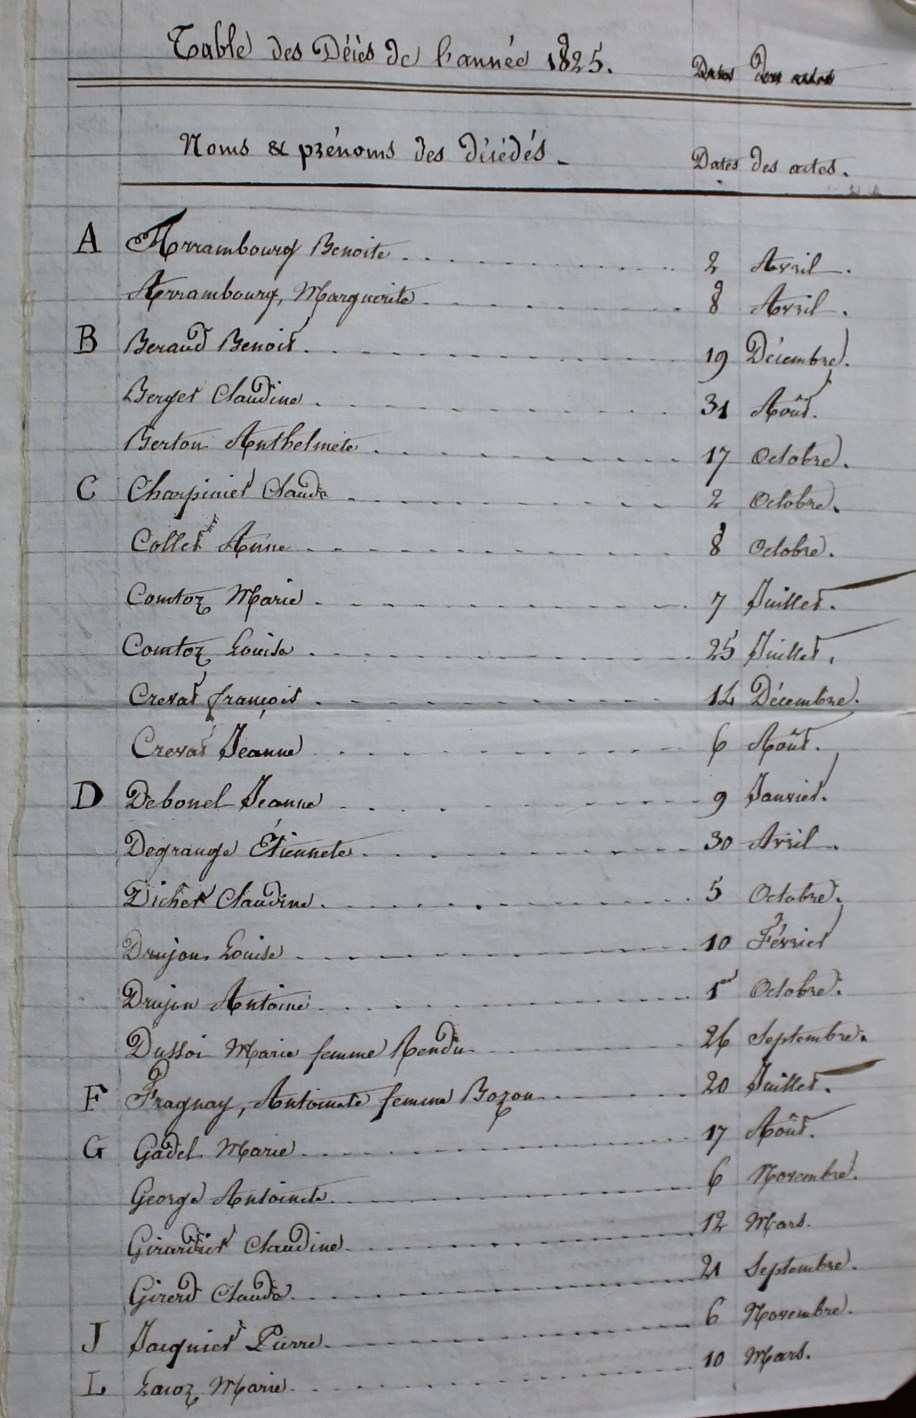 Table des Décès de l'année 1825.
Dates des actes
Noms & prénoms des décédés_ Dates des actes.
A Arrambourg Benoite 2 Avril.
Arrambourg, Marguerite 8 Avril.
B Beraud Benoit 19 Décembre.
Berger Claudine 31 Août.
Berton Anthelmete 17 Octobre.
C Charpinier Claude 2 Octobre.
Collet Anne 8 Octobre.
Comtoz Marie 7 Juillet.
Comtoz Louise 25 Juillet.
Crevat françois 14 Décembre.
Crevat Jéanne 6 Août.
D Debonel Jéanne 9 Janvier.
Degrange Étiennete 30 Avril.
Claudine 5 Octobre.
Drujon Louise 10 Février
Drujon Antoine 1er Octobre.
Dussoi Marie femme Rendu 26 Septembre.
F Fragnay, Antoinete femme Bozon 20 Juillet.
G Gadel Marie 17 Août.
George Antoinete 6 Novembre.
Girardier Claudine 12 Mars.
Girerd Claude 21 Septembre.
J Jacquier Pierre 6 Novembre.
L Lacoz Marie 10 Mars.